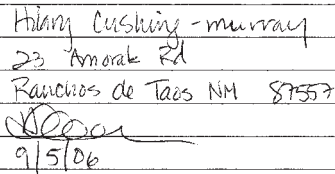 Hilary Cushing-Murray
23 Amorak Rd
Ranchos de Taos NM 87557
9/5/06